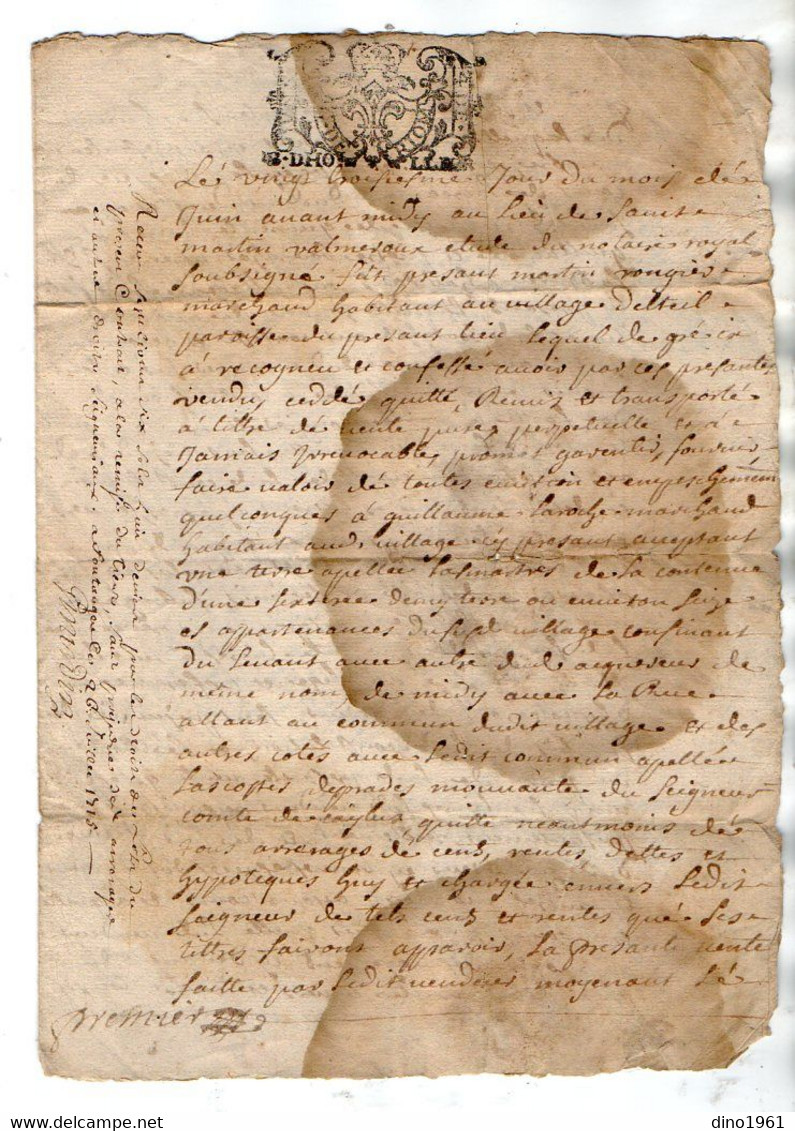 G. DE RIOM
Le vingt troisiesme Jour du mois de
Juin avant midy au Lieu de Sainct
martin valmeroux etude du notaire royal
Soubsigné fut presant martin rongier
marchand habitant au village delteil
paroisse du presant lieu lequel de gré
à recogneu et confessé avoir par ces presantes
vendu ceddé quitté, Remis et transporté
à tittre de vente pure perpetuelle et à
Jamais Irrevocable, promis garentir, fournir,
faire valoir de toutes eviction et empeschement
quelconques à guillaume Laroche marchand
habitant aud. village icy presant acceptant
une terre appellée Lasmartres de la contenue
d'une sexterée demy terre ou environ size
es appartenances du susd village confinant
du Levant avec autre dud acquereur de
même nom, de midy avec La Rue
allant au commun dudit village et des
autres cotés avec Ledit commun apellée
Lascostes deprades mouvante du Seigneur
comte de caylux, quitte neantmoins de
tous arrerages de cens, rentes, dettes et
hypoteques huy et chargée envers Ledit
Seigneur de tels cens et rentes que ses
tittres fairont apparoir, La presante vente
faitte par Ledit vendeur moyenant Le
premier
Receu Six Sols huit deniers pour les droits de Lots du
presant Contrat, à la remise du tiers, sans prejudice des arrerages
et autres droits Seigneuriaux. a 1715
dino1961